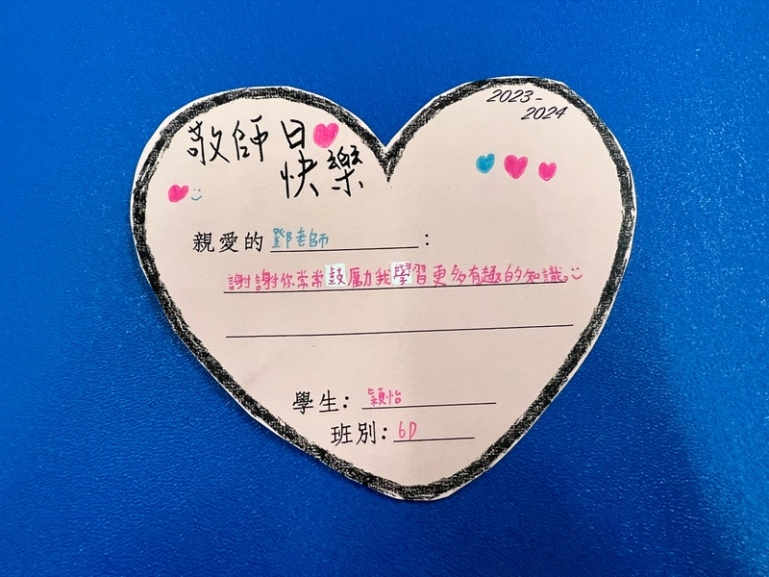 2023-
2024
敬師日
快樂
親愛的 鄧老師：
謝謝你常常鼓勵我學習更多有趣的知識。
學生：穎怡
班別：6D